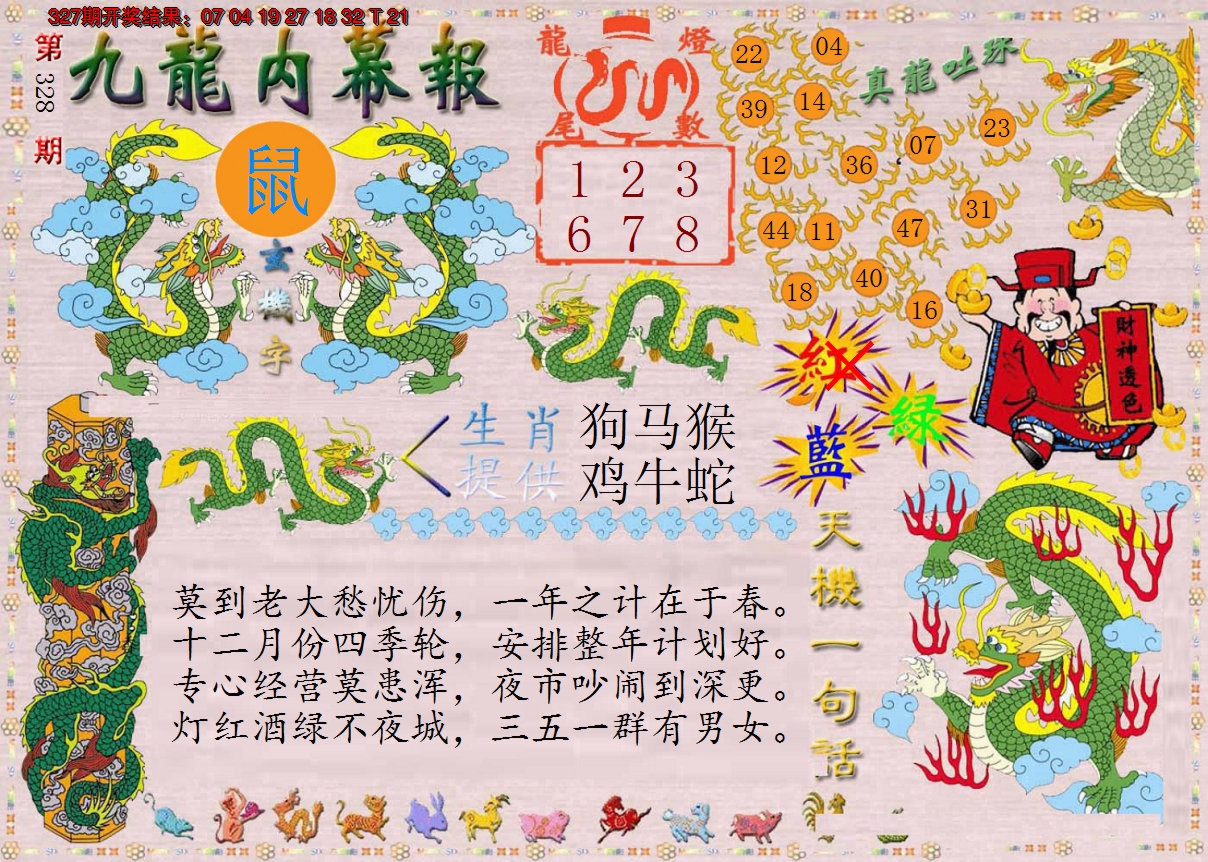 327期开奖结果：07 04 19 27 18 32 T 21
第328期
九龍内幕報
鼠
玄機字
龍燈
尾數
1 2 3
6 7 8
真龍吐珠
22 04
39 14
12 36 07 23
44 11 47 31
18 40 16
財神透色
紅
綠
藍
生肖 狗马猴
提供 鸡牛蛇
天機一句話
莫到老大愁忧伤，一年之计在于春。
十二月份四季轮，安排整年计划好。
专心经营莫患浑，夜市吵闹到深更。
灯红酒绿不夜城，三五一群有男女。